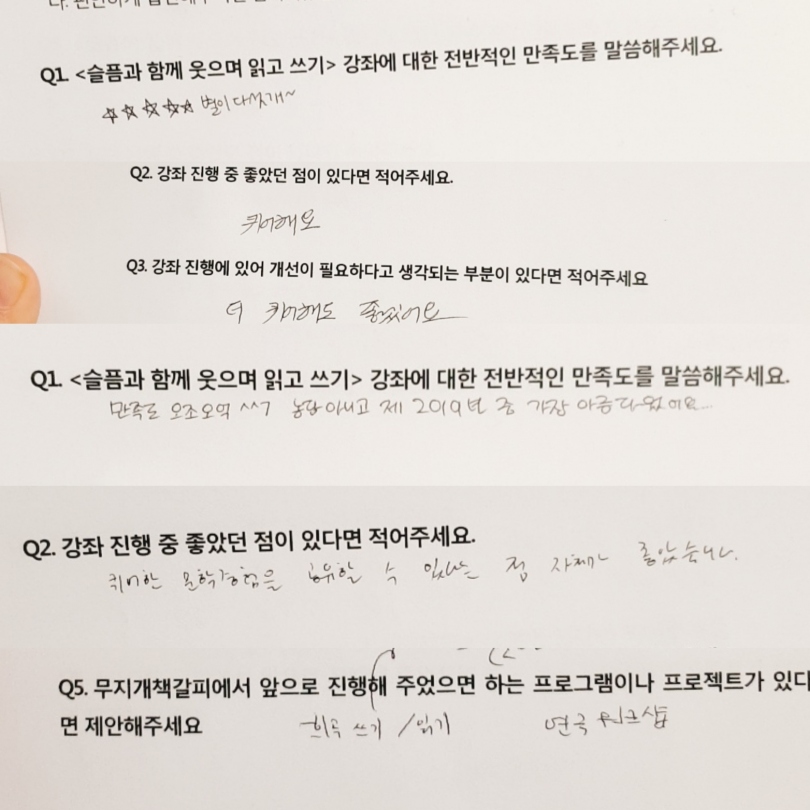 Q1. <슬픔과 함께 웃으며 읽고 쓰기> 강좌에 대한 전반적인 만족도를 말씀해주세요.
☆☆☆☆☆ 별이 다섯개~
Q2. 강좌 진행 중 좋았던 점이 있다면 적어주세요.
퀴어해요
Q3. 강좌 진행에 있어 개선이 필요하다고 생각되는 부분이 있다면 적어주세요
더 퀴어해도 좋겠어요
Q1. <슬픔과 함께 웃으며 읽고 쓰기> 강좌에 대한 전반적인 만족도를 말씀해주세요.
만족도 오조오억 농담 아니고 제 2019년 중 가장 아름다웠어요...
Q2. 강좌 진행 중 좋았던 점이 있다면 적어주세요.
퀴어한 문학경험을 공유할 수 있다는 점 자체가 좋았습니다.
Q5. 무지개책갈피에서 앞으로 진행해 주었으면 하는 프로그램이나 프로젝트가 있다
면 제안해주세요 희곡 쓰기 / 읽기 연극 워크샵